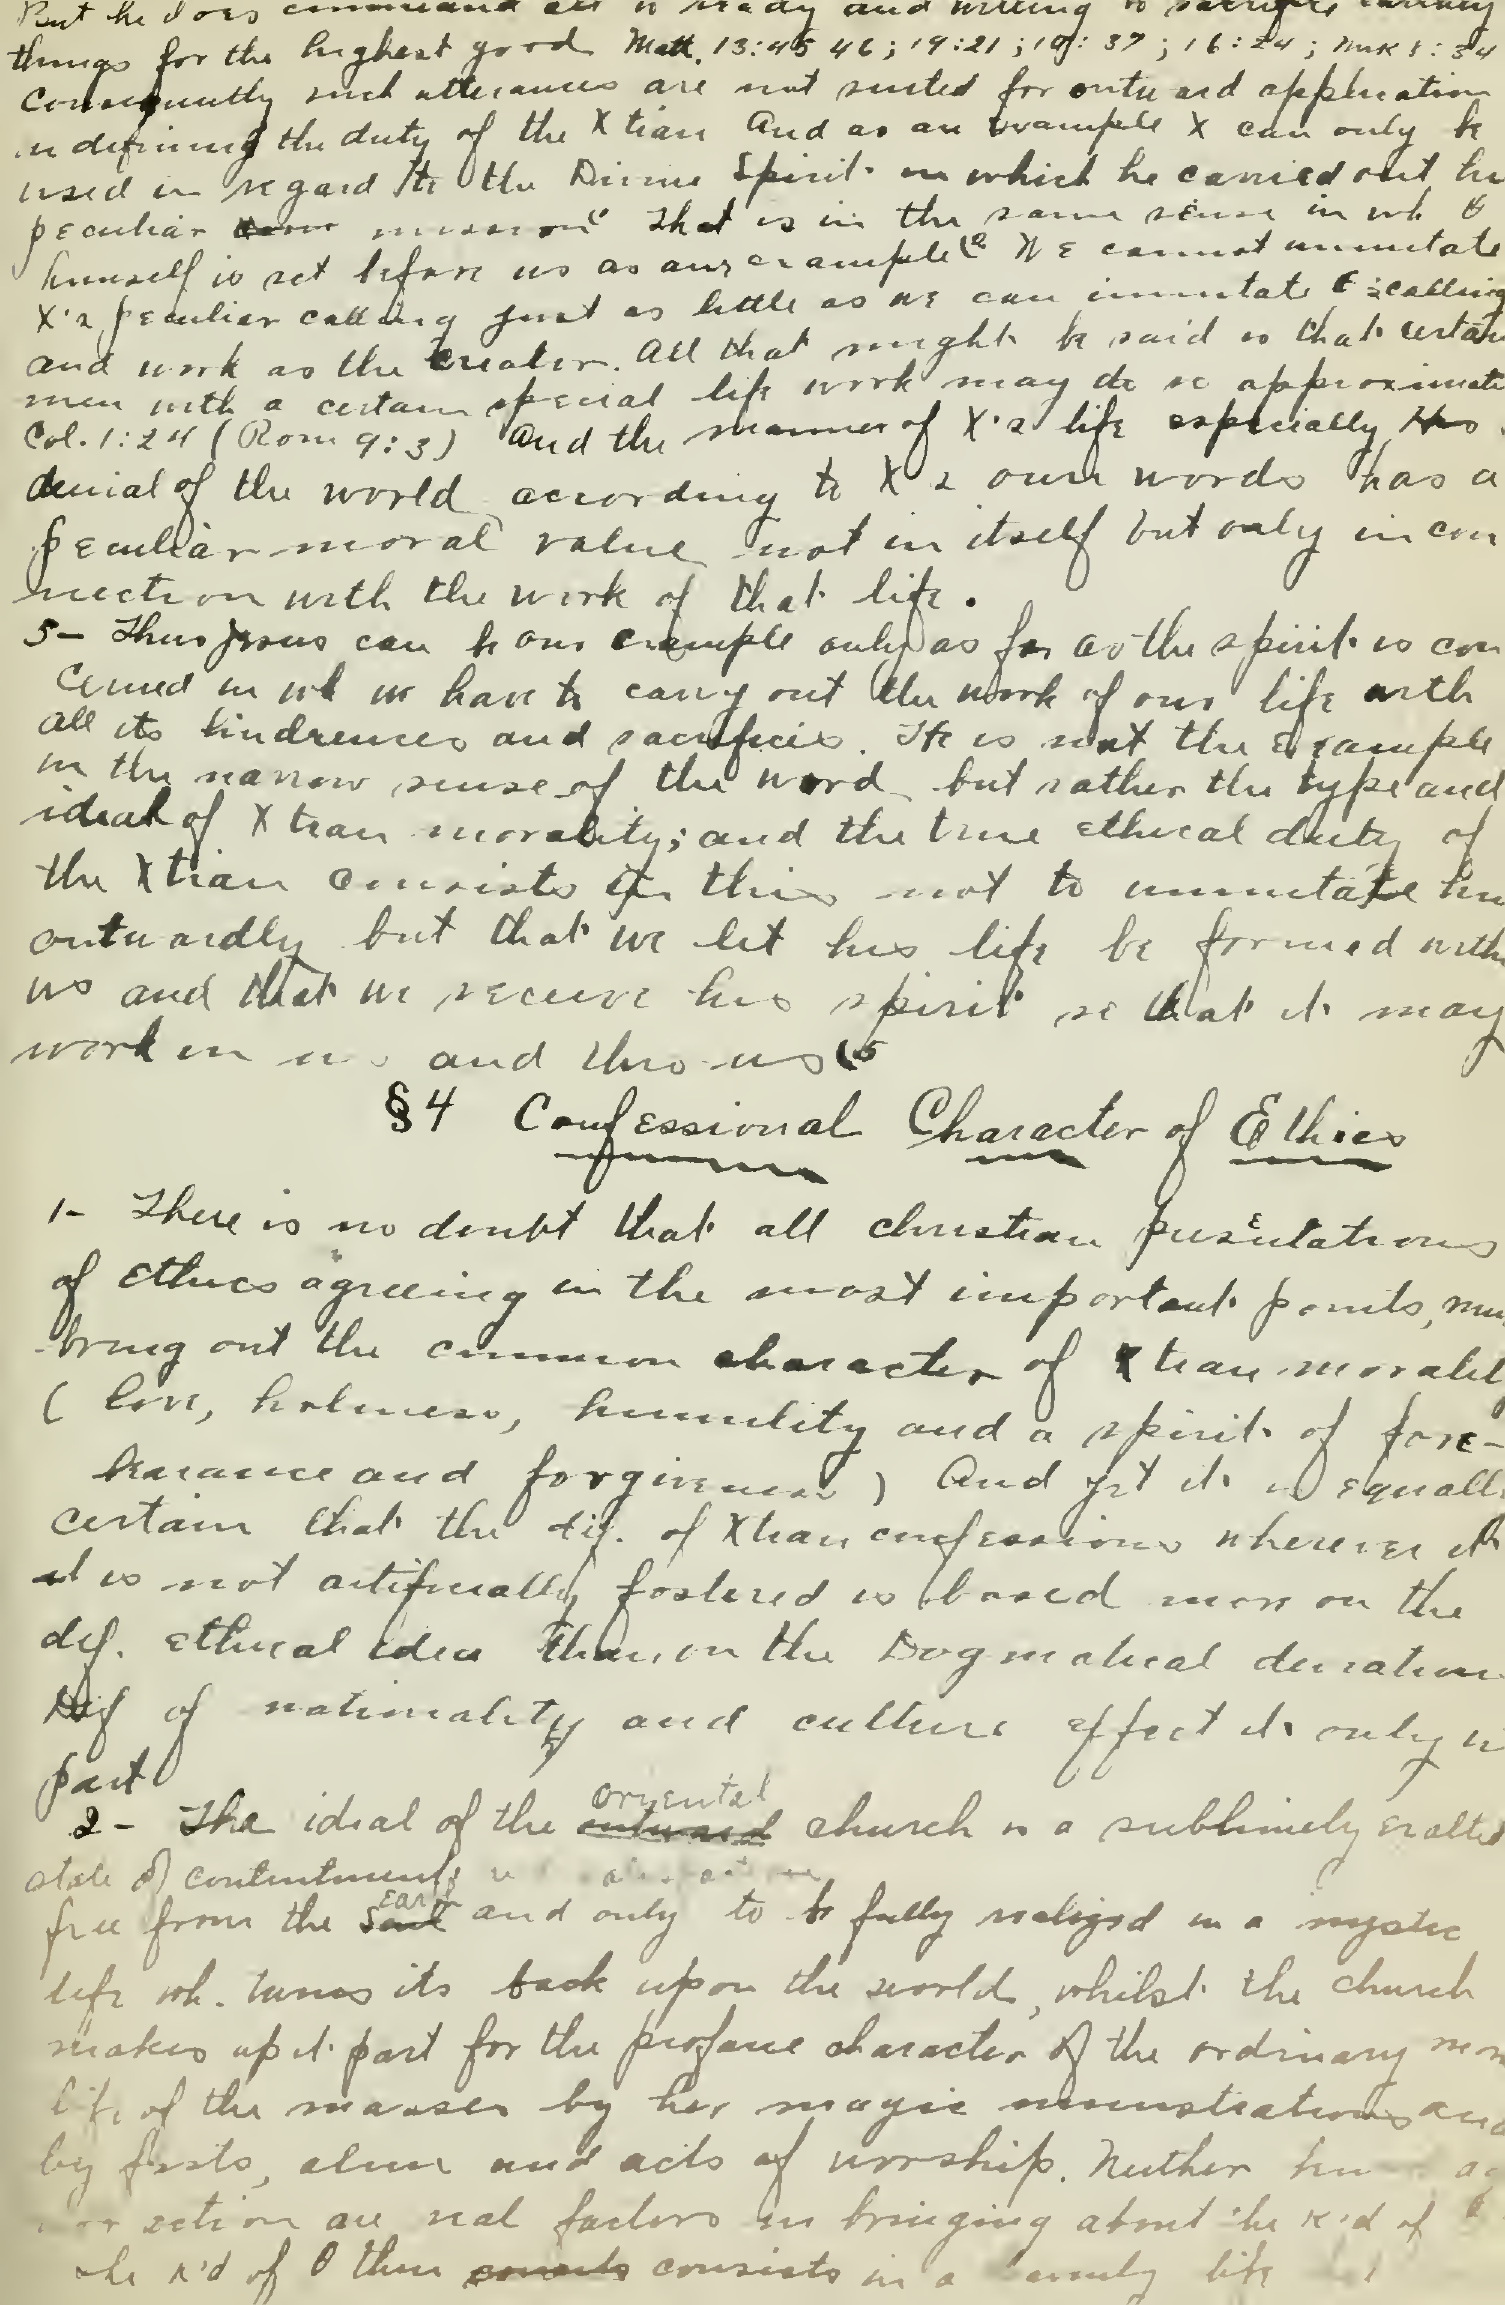 But he does command all to ready and willing to sacrifice earthly
things for the highest good Matt. 13:45 46; 19:21; 10:37; 16:24; Mrk 8:34
Consequently such utterances are not suited for outward application
in defining the duty of the Xtian And as an example X can only be
used in regard to the Divine Spirit in which he carried out his
peculiar mission" That is in the same sense in wh θ
himself is set before us as our example(2 We cannot immitate
X's peculiar calling just as little as we can immitate θ's calling
and work as the Creator. All that might be said is that certain
men with a certain special life work may do so approximate
Col. 1:24 (Rom 9:3) And the manner of X's life especially His
denial of the world according to X's own words has a
peculiar moral value not in itself but only in con
nection with the work of that life.
5- Thus Jesus can be our example only as far as the spirit is con
cerned in wh we have to carry out the work of our life with
all its hindrences and sacrifices. He is not the example
in the narrow sense of the word but rather the type and
ideal of Xtian morality; and the true ethical duty of
the Xtian consists in this not to immitate him
outwardly but that we let his life be formed within
us and that we receive his spirit so that it may
work in us and thro us(5
§4 Confessional Character of Ethics
1- There is no doubt that all christian presentations
of Ethics agreeing in the most important points, must
bring out the common character of Xtian moralit
(love, holiness, humility and a spirit of fore-
bearance and forgiveness) And yet it is equall
certain that the dif. of Xtian confessions wherever it
it is not artificially fostered is based more on the
dif. ethical idea than on the Dogmatical deviation
Dif of nationality and culture effect it only in
part
2- The ideal of the oriental church is a sublimely exalted
state of contentment
free from the Earth and only to be fully realized in a mystic
life wh. turns its back upon the world, whilst the church
makes up its part for the profane character of the ordinary
life of the masses by her magic ministrations and
by fasts, alms and acts of worship. Neither
nor action are real factors in bringing about the K'd of θ
The K'd of θ then consists in a life